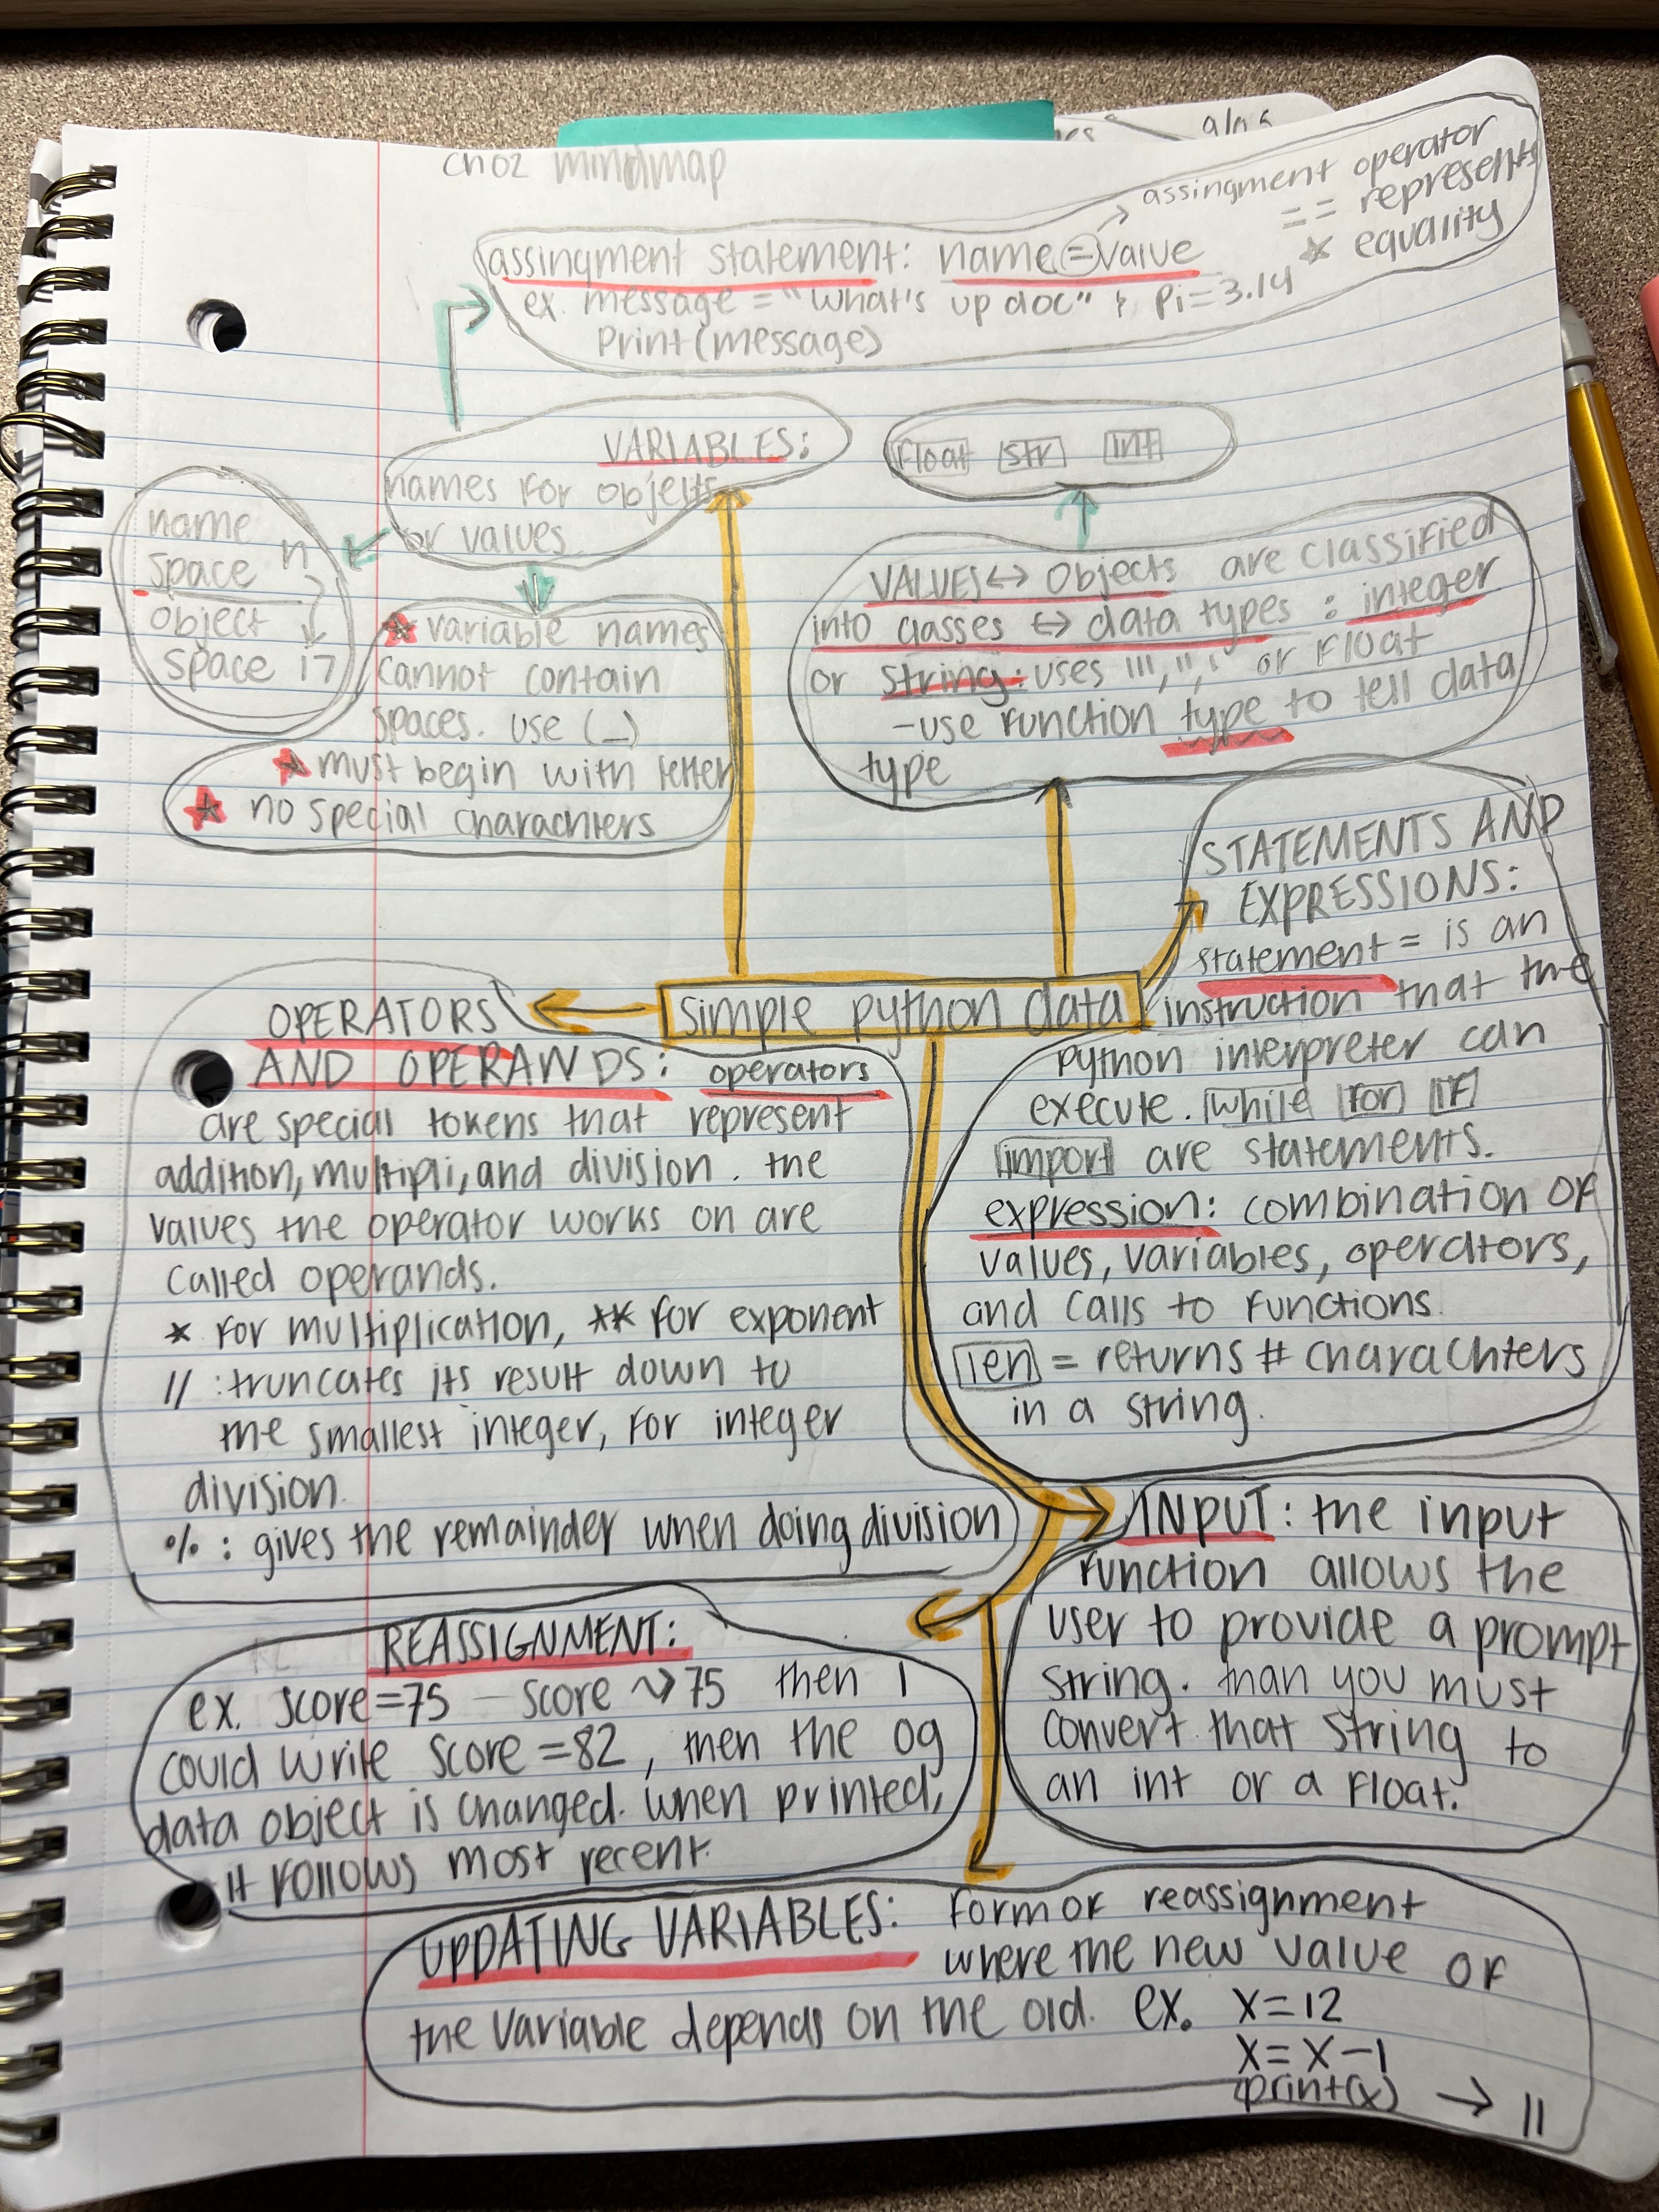 ch02 mindmap
assingment operator
== represents
* equality
assingment statement: name=value
ex. message = "what's up doc" & pi=3.14
print(message)
VARIABLES:
names for objects
or values
float str int
name
space n
object
space 17
* variable names
cannot contain
spaces. use (_)
* must begin with letter
* no special charachters
VALUES ↔ Objects are classified
into classes ↔ data types : integer
or string: uses ''', '', ' or float
-use function type to tell data
type
STATEMENTS AND
EXPRESSIONS:
statement = is an
instruction that the
python interpreter can
execute. while for if
import are statements.
expression: combination of
values, variables, operators,
and calls to functions.
len = returns # charachters
in a string.
simple python data
OPERATORS
AND OPERANDS: operators
are special tokens that represent
addition, multipli, and division. the
values the operator works on are
called operands.
* for multiplication, ** for exponent
// : truncates its result down to
the smallest integer, for integer
division.
% : gives the remainder when doing division
INPUT: the input
function allows the
user to provide a prompt
string. than you must
convert that string to
an int or a float.
REASSIGNMENT:
ex. score=75 - score ⤳ 75 then I
could write score=82, then the og
data object is changed. when printed,
it follows most recent.
UPDATING VARIABLES: form of reassignment
where the new value of
the variable depends on the old. ex. x=12
x=x-1
print(x) → 11